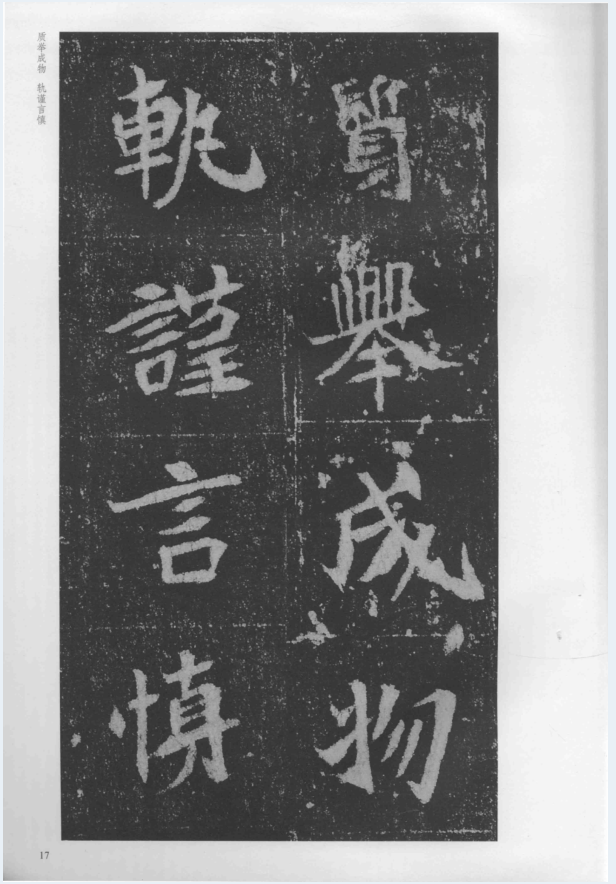 質舉成物
軌謹言慎
质举成物 轨谨言慎
17